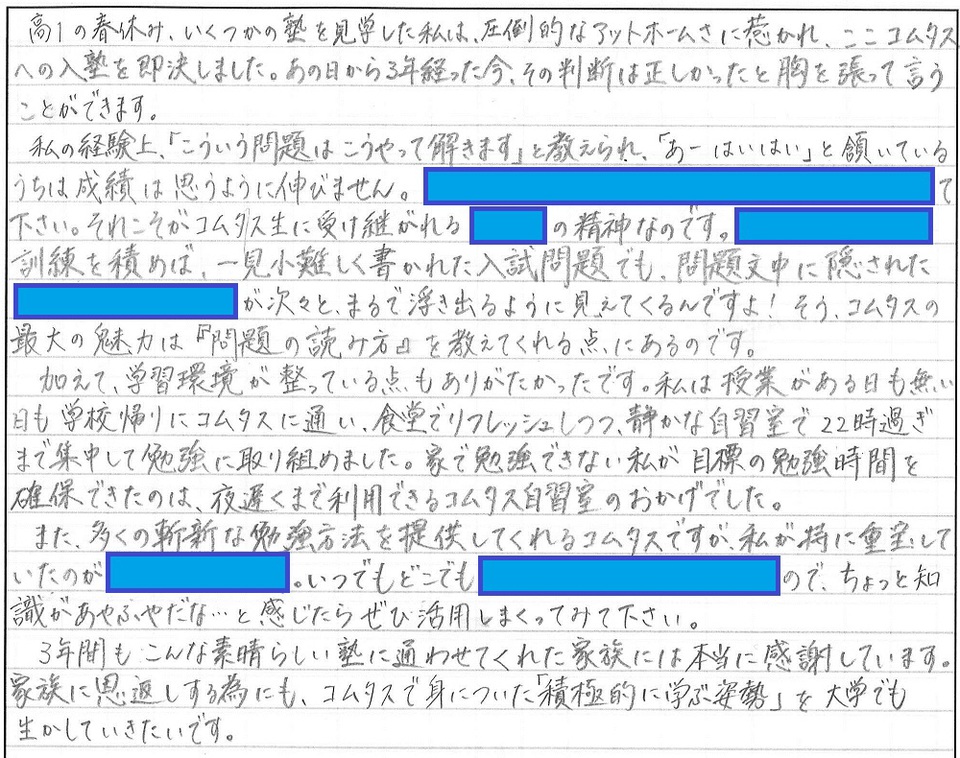 高1の春休み、いくつかの塾を見学した私は、圧倒的なアットホームさに惹かれ、ここコムタス
への入塾を即決しました。あの日から3年経った今、その判断は正しかったと胸を張って言う
ことができます。
私の経験上、「こういう問題はこうやって解きます」と教えられ、「あーはいはい」と頷いている
うちは成績は思うように伸びません。 て
下さい。それこそがコムタス生に受け継がれる の精神なのです。
訓練を積めば、一見小難しく書かれた入試問題でも、問題文中に隠された
が次々と、まるで浮き出るように見えてくるんですよ！そう、コムタスの
最大の魅力は『問題の読み方』を教えてくれる点にあるのです。
加えて、学習環境が整っている点もありがたかったです。私は授業がある日も無い
日も学校帰りにコムタスに通い、食堂でリフレッシュしつつ、静かな自習室で22時過ぎ
まで集中して勉強に取り組めました。家で勉強できない私が目標の勉強時間を
確保できたのは、夜遅くまで利用できるコムタス自習室のおかげでした。
また、多くの斬新な勉強方法を提供してくれるコムタスですが、私が特に重宝して
いたのが 。いつでもどこでも ので、ちょっと知
識があやふやだな…と感じたらぜひ活用しまくってみて下さい。
3年間もこんな素晴らしい塾に通わせてくれた家族には本当に感謝しています。
家族に恩返しする為にも、コムタスで身についた「積極的に学ぶ姿勢」を大学でも
生かしていきたいです。